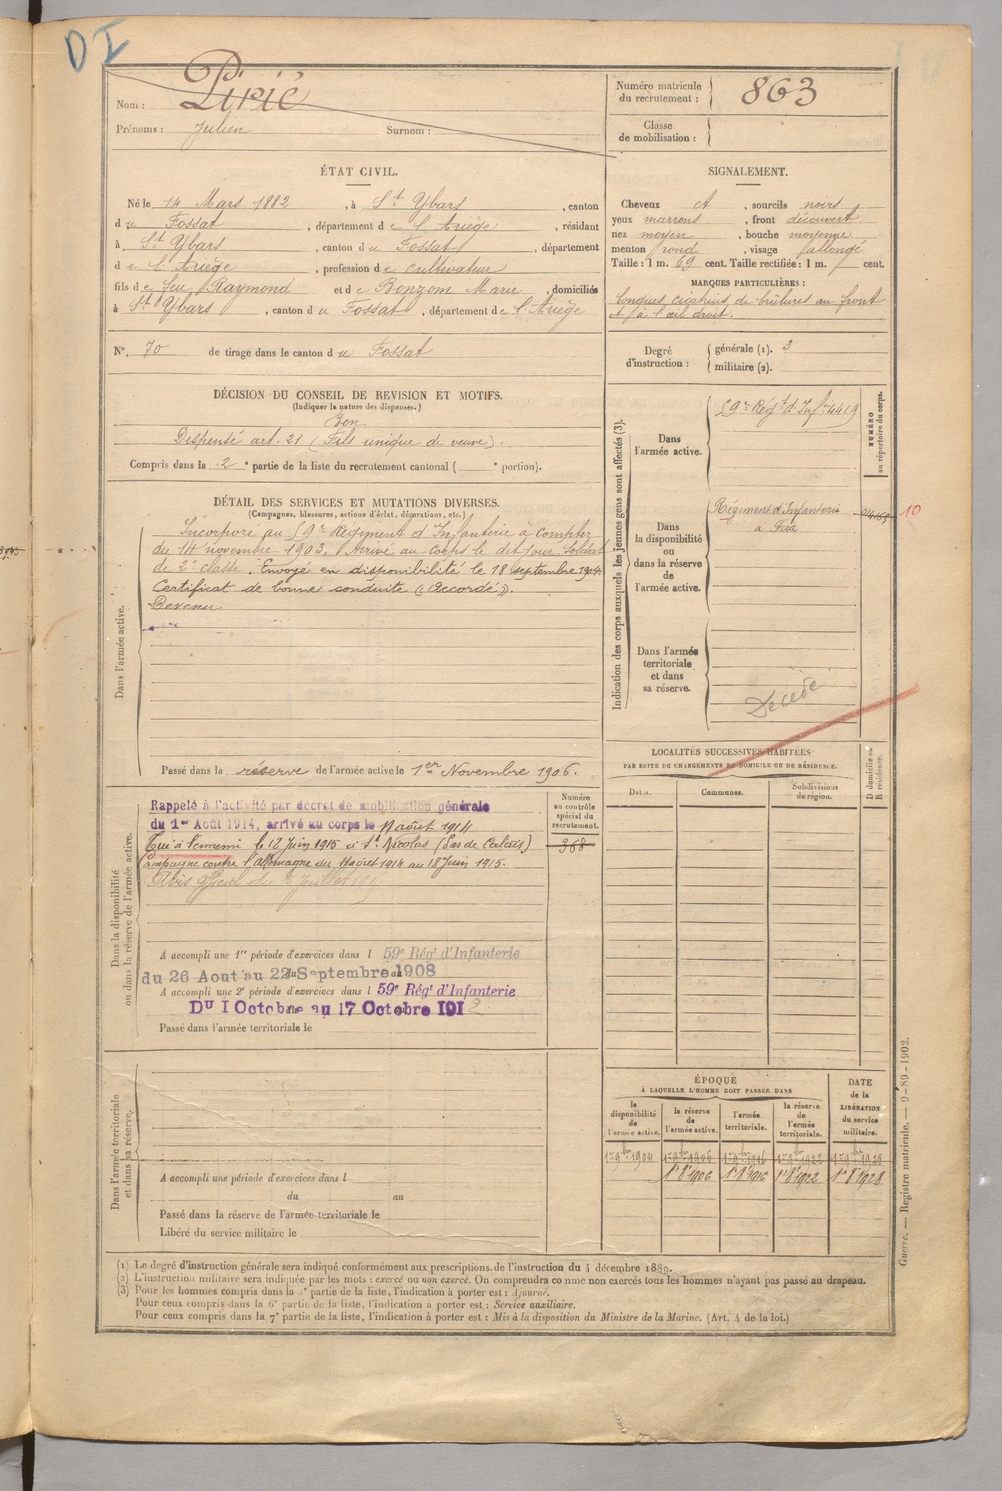 DI
Nom : Pirié
Prénoms : Julien Surnom :
Numéro matricule
du recrutement : 863
Classe
de mobilisation :
ÉTAT CIVIL.
Né le 14 Mars 1882, à St Ybars, canton
du Fossat, département de l'Ariège, résidant
à St Ybars, canton du Fossat, département
de l'Ariège, profession de cultivateur
fils de feu Raymond et de Bonzom Marie, domiciliés
à St Ybars, canton du Fossat, département de l'Ariège
N°. 70 de tirage dans le canton du Fossat
SIGNALEMENT.
Cheveux et, sourcils noirs
yeux marrons, front découvert
nez moyen, bouche moyenne
menton rond, visage allongé
Taille : 1 m. 69 cent. Taille rectifiée : 1 m. cent.
MARQUES PARTICULIÈRES :
longues cicatrices de brûlures au front
et à l'œil droit.
Degré
d'instruction :
générale (1). 3
militaire (2).
DÉCISION DU CONSEIL DE REVISION ET MOTIFS.
(Indiquer la nature des dispenses.)
Bon
Dispensé art. 21 (Fils unique de veuve).
Compris dans la 2e partie de la liste du recrutement cantonal ( e portion).
DÉTAIL DES SERVICES ET MUTATIONS DIVERSES.
(Campagnes, blessures, actions d'éclat, décorations, etc.)
Dans l'armée active.
Incorporé au 59e Régiment d'Infanterie à compter
du 14 novembre 1903, Arrivé au corps le dit jour Soldat
de 2e classe. Envoyé en disponibilité le 18 septembre 1904.
Certificat de bonne conduite "Accordé".
Devenu
Passé dans la réserve de l'armée active le 1er Novembre 1906.
Indication des corps auxquels les jeunes gens sont affectés (3).
NUMÉRO
au répertoire du corps.
Dans
l'armée active.
59e Régt d'Infie 4419
Dans
la disponibilité
ou
dans la réserve
de
l'armée active.
Régiment d'Infanterie
à Foix
10
Dans l'armée
territoriale
et dans
sa réserve.
Décédé
LOCALITÉS SUCCESSIVES HABITÉES
PAR SUITE DE CHANGEMENTS DE DOMICILE OU DE RÉSIDENCE.
Dates.
Communes.
Subdivisions
de région.
D domicile ou
R résidence.
Dans la disponibilité
ou dans la réserve de l'armée active.
Numéro
au contrôle
spécial du
recrutement.
368
Rappelé à l'activité par décret de mobilisation générale
du 1er Août 1914, arrivé au corps le août 1914
Tué à l'ennemi le 18 Juin 1915 à St Nicolas (Pas de Calais)
Campagne contre l'Allemagne du août 1914 au 18 Juin 1915.
Avis officiel du Juillet
A accompli une 1re période d'exercices dans l 59e Régt d'Infanterie
du 26 Aout au 22 Septembre 1908
A accompli une 2e période d'exercices dans l 59e Régt d'Infanterie
Du 1 Octobre au 17 Octobre 1912
Passé dans l'armée territoriale le
Dans l'armée territoriale
et dans sa réserve.
A accompli une période d'exercices dans l
du au
Passé dans la réserve de l'armée territoriale le
Libéré du service militaire le
ÉPOQUE
À LAQUELLE L'HOMME DOIT PASSER DANS
DATE
de la
LIBÉRATION
du service
militaire.
la
disponibilité
de
l'armée active.
la réserve
de
l'armée active.
l'armée
territoriale.
la réserve
de
l'armée
territoriale.
1er 9bre 1904 1er 9bre 1906 1er 9bre 1916 1er 9bre 1922 1er 9bre 1928
1er 8bre 1906 1er 8bre 1916 1er 8bre 1922 1er 8bre 1928
(1) Le degré d'instruction générale sera indiqué conformément aux prescriptions de l'instruction du 4 décembre 1889.
(2) L'instruction militaire sera indiquée par les mots : exercé ou non exercé. On comprendra comme non exercés tous les hommes n'ayant pas passé au drapeau.
(3) Pour les hommes compris dans la 5e partie de la liste, l'indication à porter est : Ajourné.
Pour ceux compris dans la 6e partie de la liste, l'indication à porter est : Service auxiliaire.
Pour ceux compris dans la 7e partie de la liste, l'indication à porter est : Mis à la disposition du Ministre de la Marine. (Art. 4 de la loi.)
Guerre. — Registre matricule. — 9-89-1902.